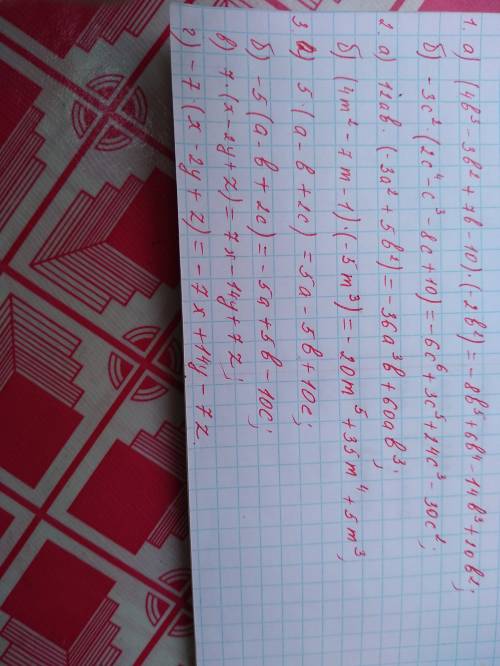 1. а) (4b³ - 3b² + 7b - 10)·(-2b²) = -8b⁵ + 6b⁴ - 14b³ + 20b²;
б) -3c²·(2c⁴ - c³ - 8c + 10) = -6c⁶ + 3c⁵ + 24c³ - 30c²;
2. а) 12ab·(-3a² + 5b²) = -36a³b + 60ab³;
б) (4m² - 7m - 1)·(-5m³) = -20m⁵ + 35m⁴ + 5m³;
3. а) 5·(a - b + 2c) = 5a - 5b + 10c;
б) -5(a - b + 2c) = -5a + 5b - 10c;
в) 7·(x - 2y + z) = 7x - 14y + 7z;
г) -7(x - 2y + z) = -7x + 14y - 7z.